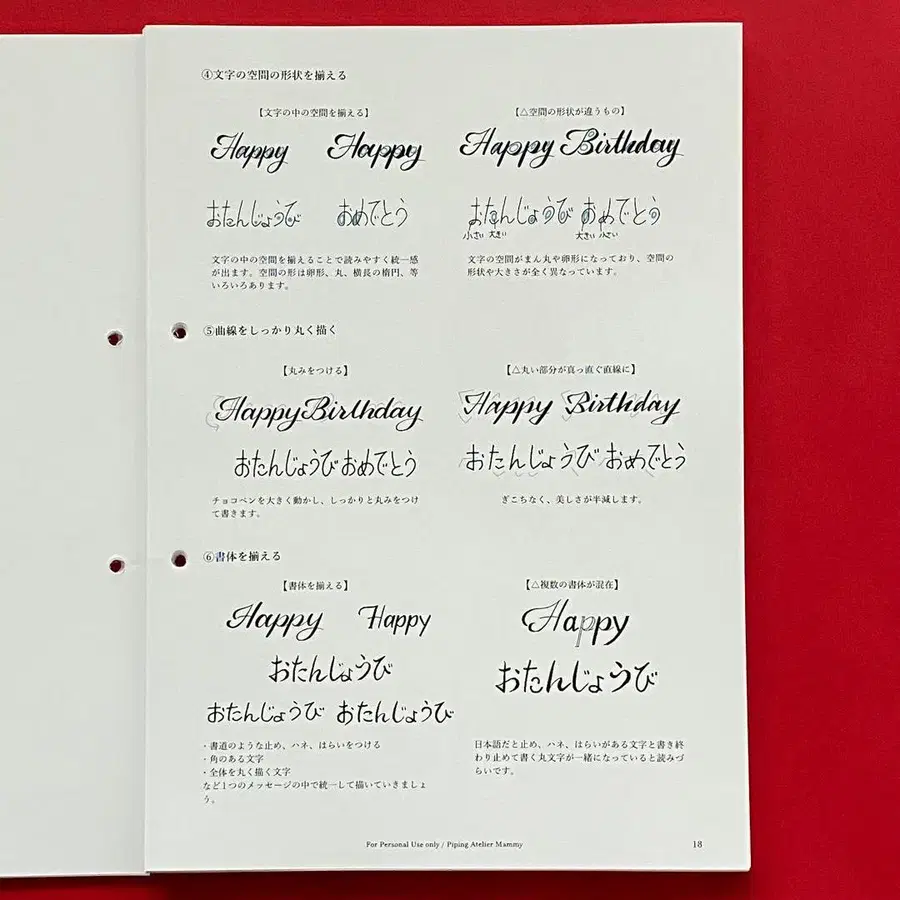 ④文字の空間の形状を揃える
【文字の中の空間を揃える】
Happy Happy
おたんじょうび おめでとう
文字の中の空間を揃えることで読みやすく統一感
が出ます。空間の形は卵形、丸、横長の楕円、等
いろいろあります。
【△空間の形状が違うもの】
Happy Birthday
おたんじょうび おめでとう
小さい 大きい 大きい 小さい
文字の空間がまん丸や卵形になっており、空間の
形状や大きさが全く異なっています。
⑤曲線をしっかり丸く描く
【丸みをつける】
Happy Birthday
おたんじょうび おめでとう
チョコペンを大きく動かし、しっかりと丸みをつけ
て書きます。
【△丸い部分が真っ直ぐ直線に】
Happy Birthday
おたんじょうび おめでとう
ぎこちなく、美しさが半減します。
⑥書体を揃える
【書体を揃える】
Happy Happy
おたんじょうび
おたんじょうび おたんじょうび
・書道のような止め、ハネ、はらいをつける
・角のある文字
・全体を丸く描く文字
など1つのメッセージの中で統一して描いていきましょ
う。
【△複数の書体が混在】
Happy
おたんじょうび
日本語だと止め、ハネ、はらいがある文字と書き終
わり止めて書く丸文字が一緒になっていると読みづ
らいです。
For Personal Use only / Piping Atelier Mammy
18